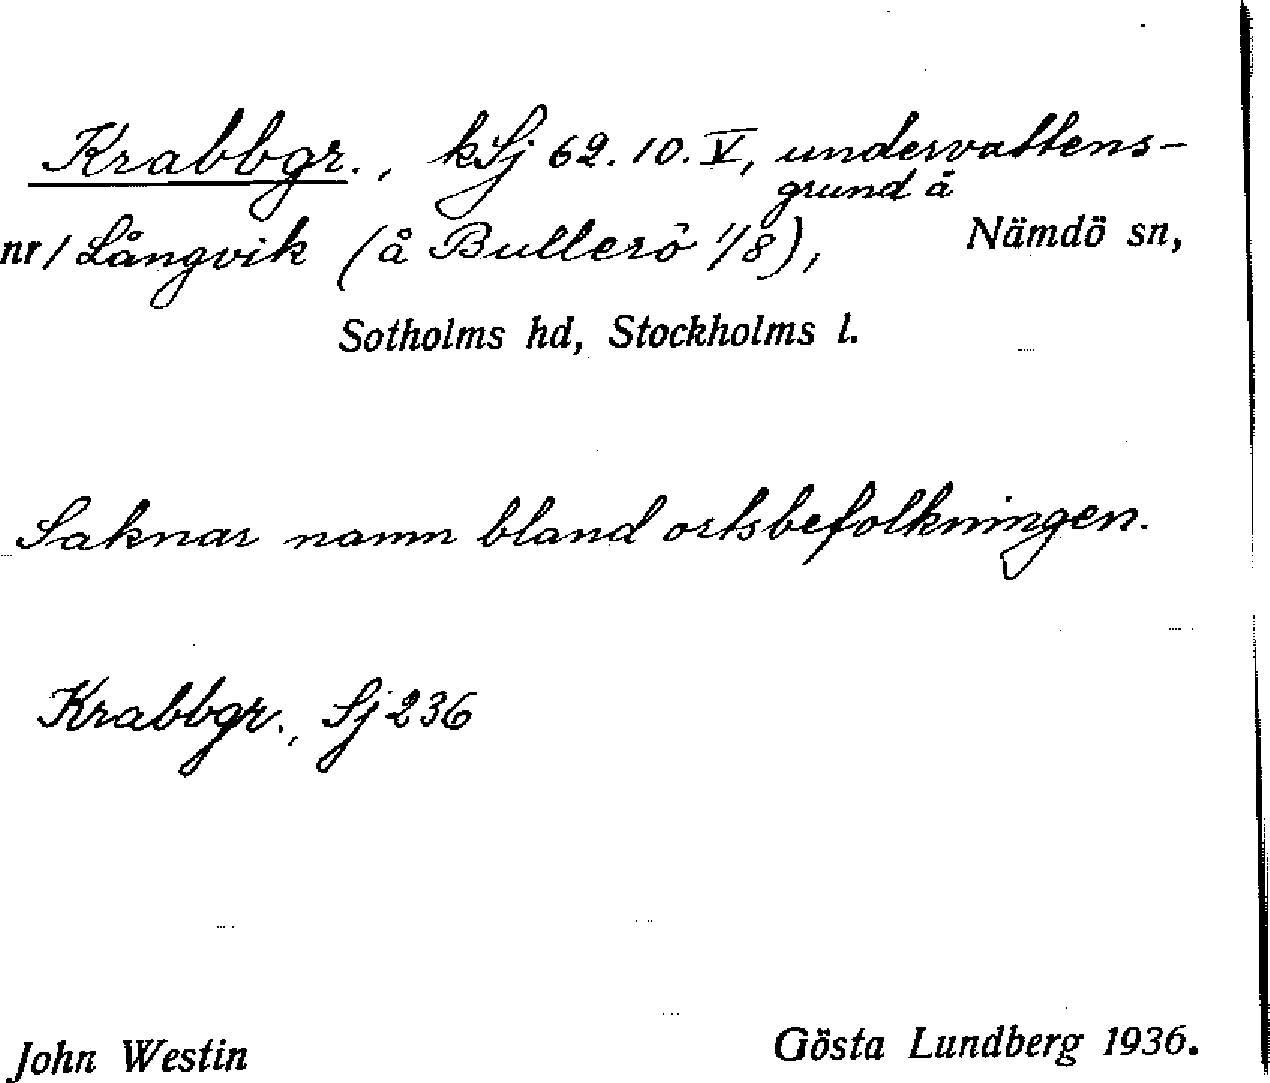 Krabbgr., kSj 62.10.V, undervattens-
grund å
nr 1 Långvik (å Bullerö 1/8), Nämdö sn,
Sotholms hd, Stockholms l.
Saknar namn bland ortsbefolkningen.
Krabbgr., Sj 236
John Westin Gösta Lundberg 1936.